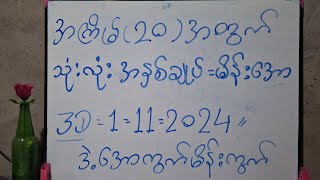 အကြိမ်(၂၀)အတွက်
သုံးလုံး အနှစ်ချုပ်=မိန်းအော
3D=1=11=2024"
ဒဲ့အောကွက်မိန်းကွက်